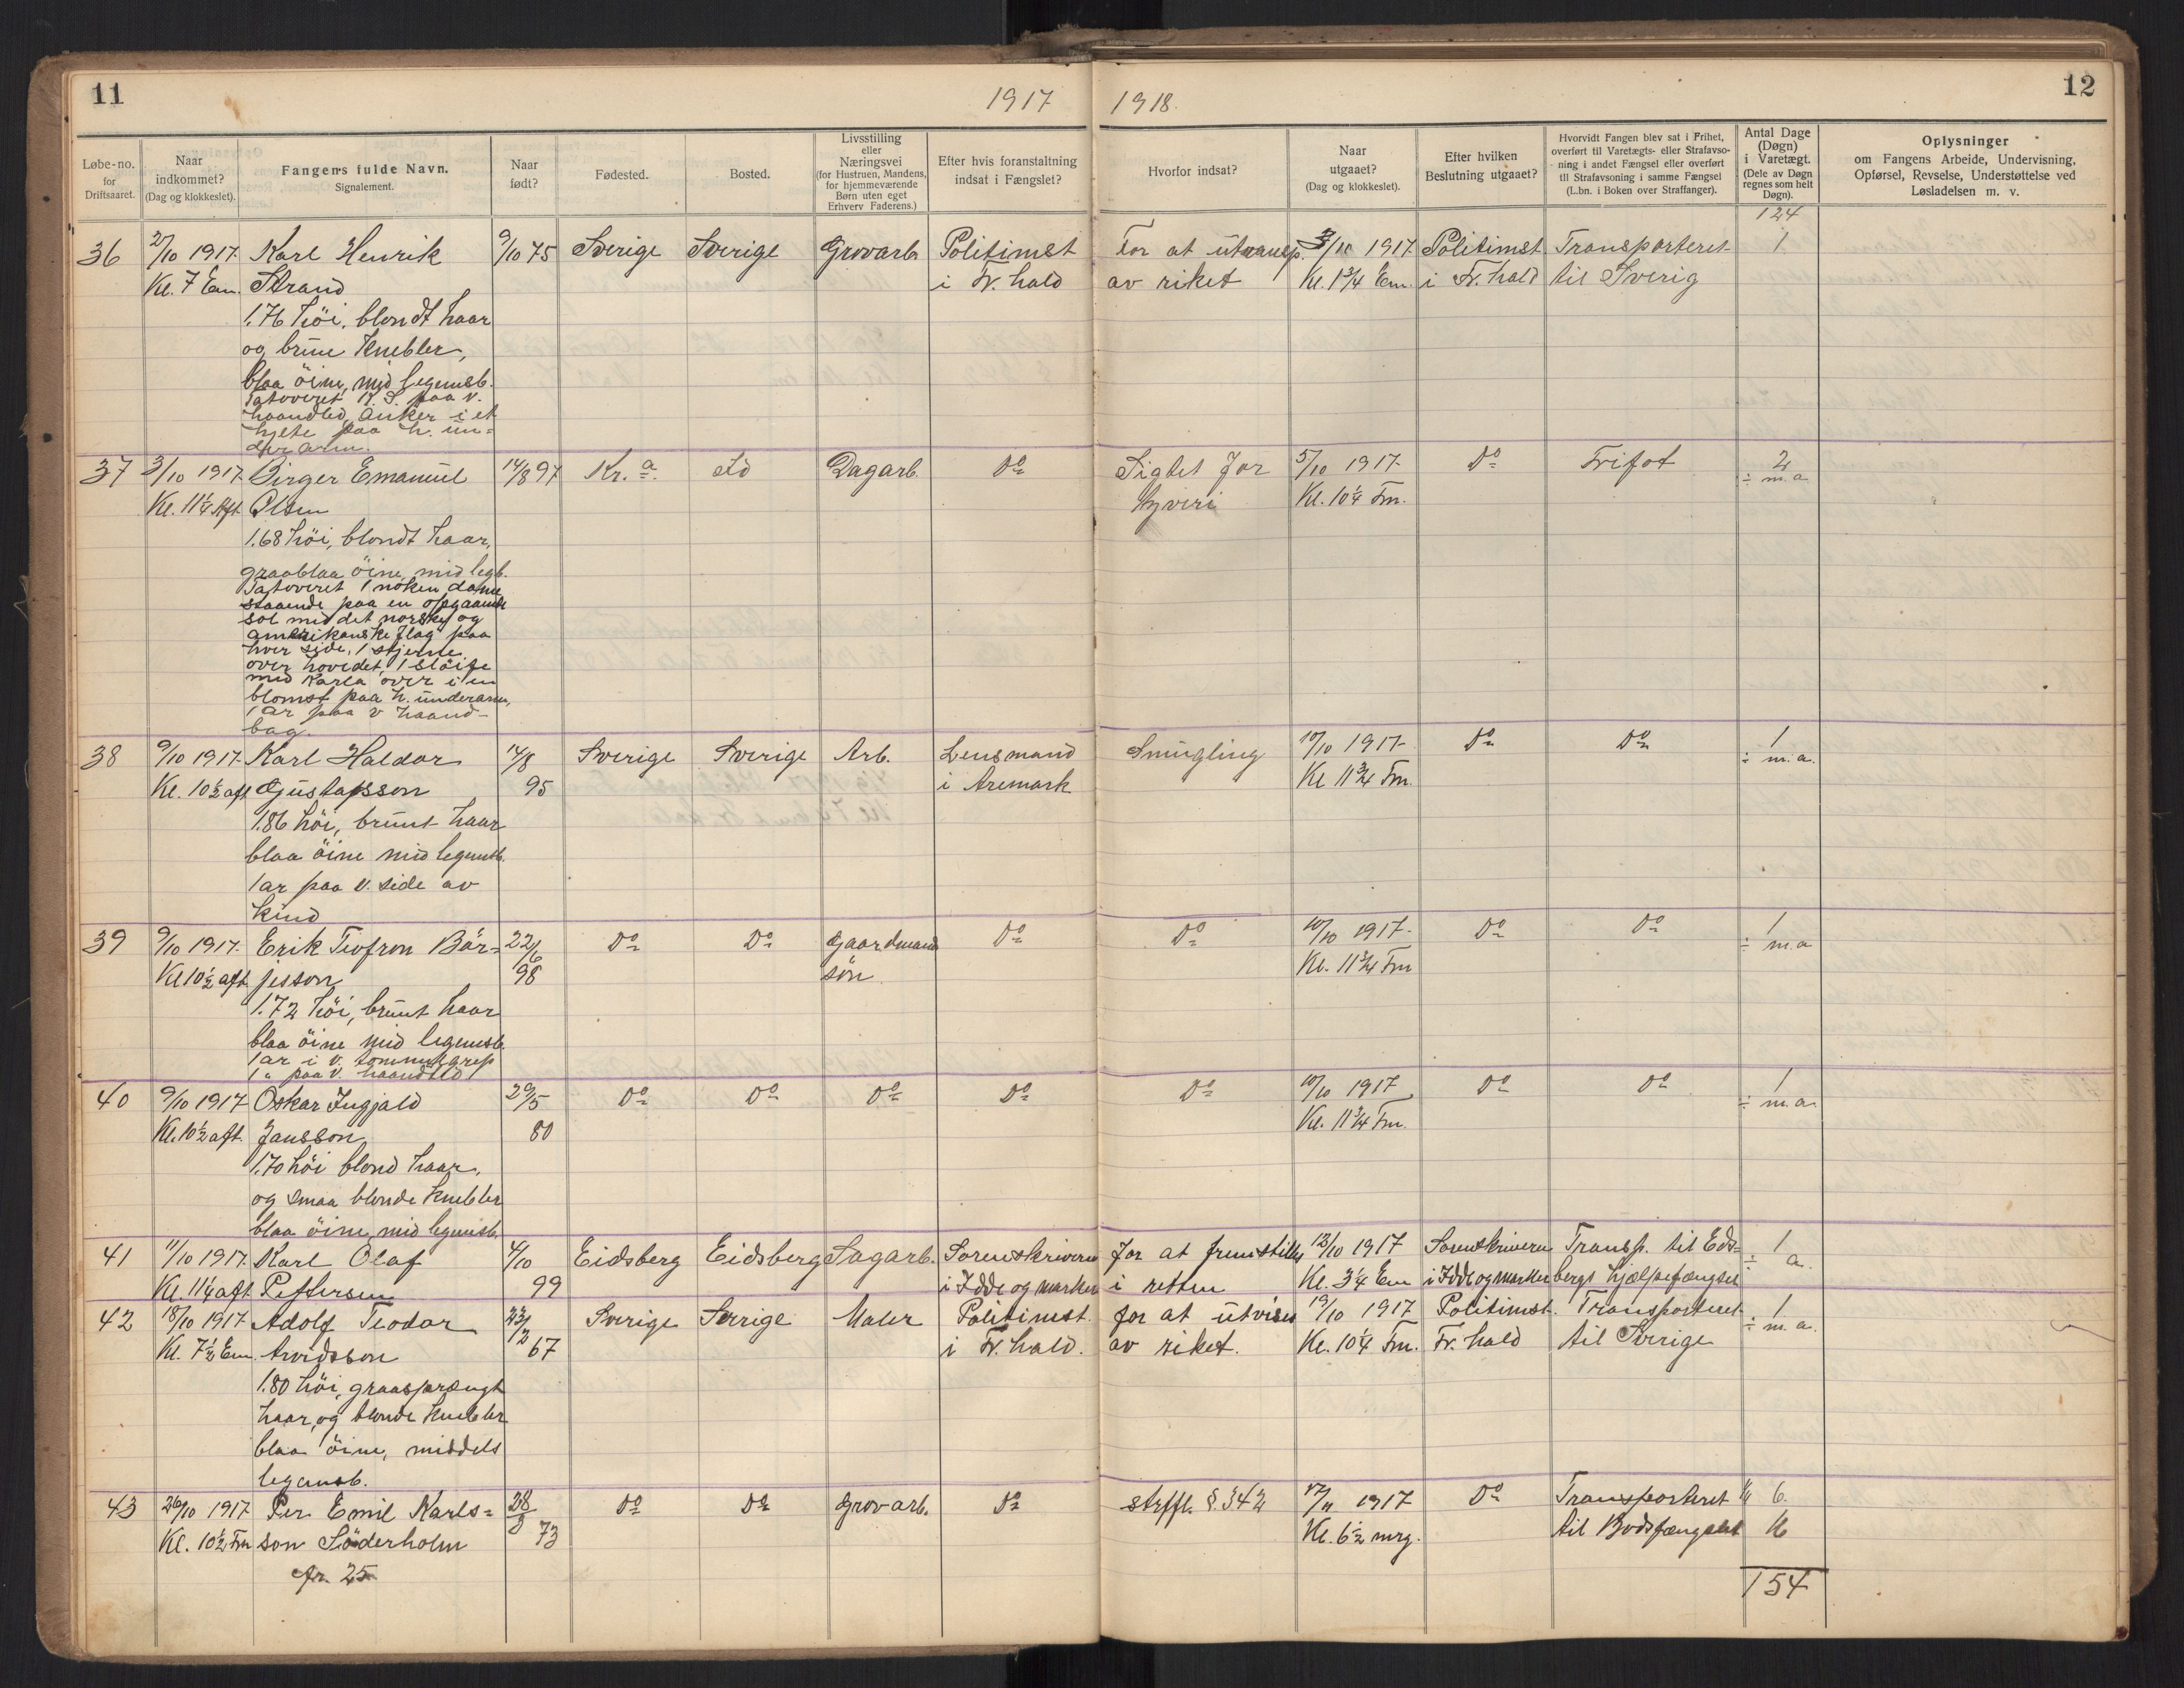 11
1917
1918.
12
Løbe-no. for Driftsaaret.
Naar indkommet? (Dag og klokkeslet).
Fangens fulde Navn. Signalement.
Naar født?
Fødested.
Bosted.
Livsstilling eller Næringsvei (for Hustruen, Mandens, for hjemmeværende Børn uten eget Erhverv Faderens.)
Efter hvis foranstaltning indsat i Fængslet?
Hvorfor indsat?
Naar utgaaet? (Dag og klokkeslet).
Efter hvilken Beslutning utgaaet?
Hvorvidt Fangen blev sat i Frihet, overført til Varetægts- eller Strafavsoning i andet Fængsel eller overført til Strafavsoning i samme Fængsel (L.bn. i Boken over Straffanger).
Antal Dage (Døgn) i Varetægt. (Dele av Døgn regnes som helt Døgn).
Oplysninger om Fangens Arbeide, Undervisning, Opførsel, Revselse, Understøttelse ved Løsladelsen m. v.
124
36 2/10 1917. Karl Henrik 9/10 75 Sverige Sverige Grovarb. Politimst For at utransp. 3/10 1917. Politimst Transporteret 1
Kl. 7 Em. Strand i Fr. hald av riket Kl. 1 3/4 Em. i Fr. hald til Sverig
1.76 höi, blondt haar
og brune Knebler,
blaa öine, mid legemsb.
Tatoveret K. S. paa v.
haandled, anker i et
hjete paa h. un=
der arm.
37 3/10 1917. Birger Emanuel 14/8 97 Kr.a. Id Dagarb. Do Sigtet for 5/10 1917. Do Frifot 2
Kl. 11 1/4 Aft. Olsen tyveri Kl. 10 1/4 Fm. ÷ m.a
1.68 höi, blondt haar,
graablaa öine, mid legb.
Tatoveret 1 nöken dame
staaende paa en opgaaende
sol med det norske og
amerikanske flag paa
hver side, 1 stjerne
over hovedet, 1 slöife
med Karla over i en
blomst paa h. underarm,
1 ar paa v haand-
bag.
38 9/10 1917. Karl Haldor 14/8 Sverige Sverige Arb. Lensmand Smugling 10/10 1917 Do Do 1
Kl. 10 1/2 aft. Gustafsson 95 i Aremark Kl 11 3/4 Fm. ÷ m.a.
1.86 höi, brunt haar
blaa öine mid legemsb.
1 ar paa v. side av
kind
39 9/10 1917. Erik Teofron Bör= 22/6 Do Do Gaardmands Do Do 10/10 1917. Do Do 1
Kl 10 1/2 aft. jesson 98 sön Kl. 11 3/4 Fm ÷ m.a
1.72 höi, brunt haar
blaa öine mid legemsb.
1 ar i v. tommelgrep
1 " paa v. haandled
40 9/10 1917 Oskar Ingjald 29/5 Do Do Do Do Do 10/10 1917 Do Do 1
Kl. 10 1/2 aft. Jansson 80 Kl. 11 3/4 Fm. ÷ m.a.
1.70 höi blond haar,
og smaa blonde Knebler
blaa öine, mid legemsb.
41 11/10 1917. Karl Olaf 4/10 Eidsberg Eidsberg Sagarb. Sorenskriveren for at fremstilles 12/10 1917 Sorenskriveren Transp. til Eds= 1
Kl. 11 1/4 aft. Pettersen 99 i Idde og Marker i retten Kl. 3 1/4 Em i Idde og Marker bergs hjælpefængsel ÷ a.
42 18/10 1917 Adolf Teodor 23/2 Sverige Sverige Maler Politimst. for at utvises 19/10 1917 Politimst. Transporteret 1
Kl. 7 1/2 Em. Arvidsson 67 i Fr. hald. av riket. Kl. 10 1/4 Fm. Fr. hald til Sverige ÷ m.a.
1.80 höi, graasprængt
haar, og blonde Knebler
blaa öine, middels
legemsb.
43 26/10 1917 Per Emil Karls= 28/3 Do Do Grovarb. Do strffl. § 342 17/11 1917 Do Transporteret 6.
Kl. 10 1/2 Fm son Söderholm 73 Kl. 6 1/2 mrg. til Bodsfængslet 16
fr. 25
154